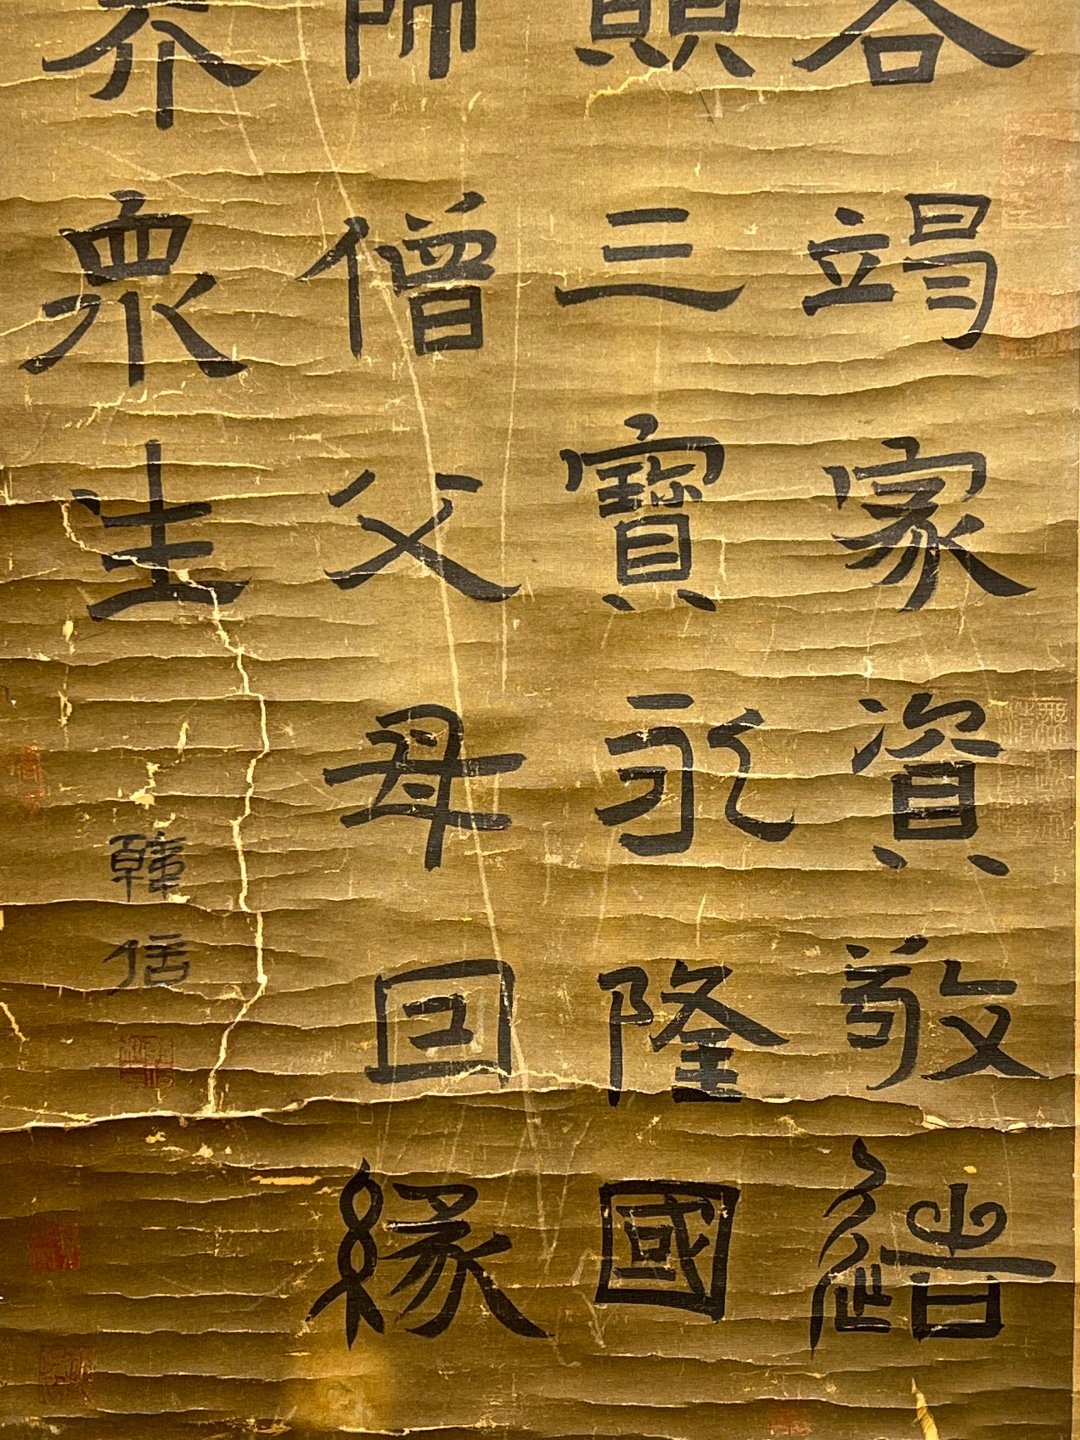 各竭家資敬造
願三寶永隆國
師僧父母囙緣
界眾生
韓信